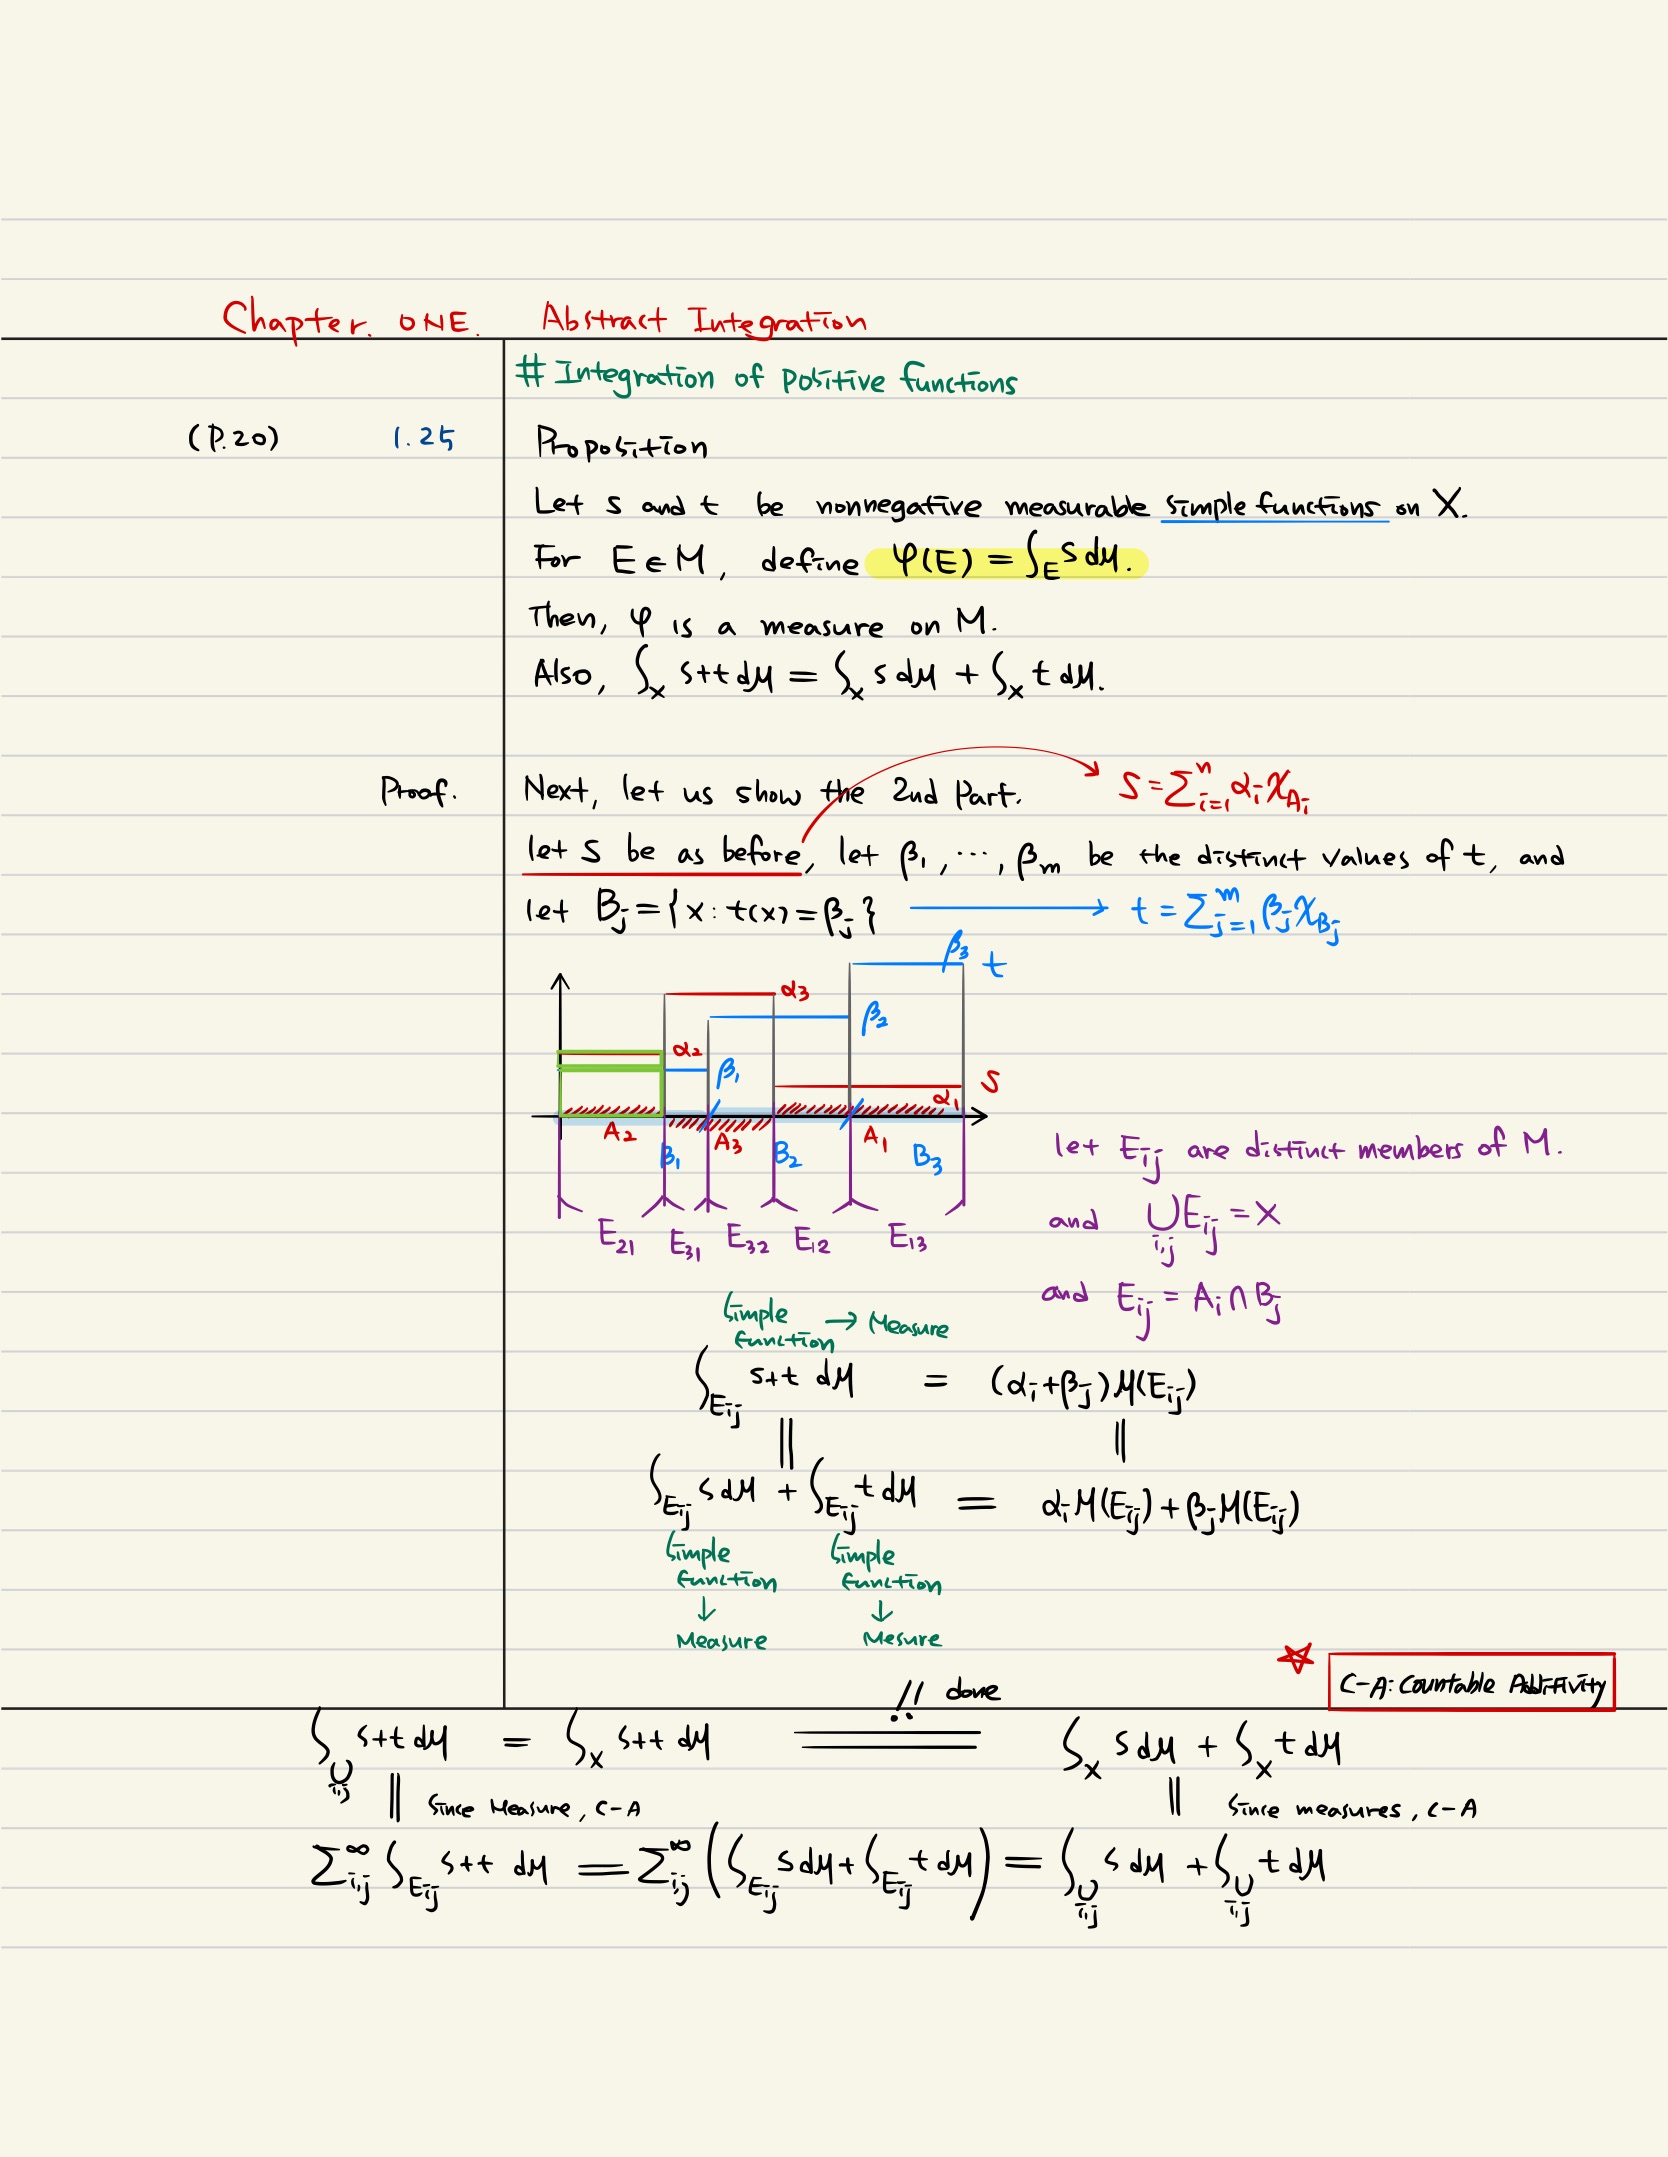 Chapter. ONE. Abstract Integration
# Integration of positive functions
(P.20) 1.25 Proposition
Let s and t be nonnegative measurable simple functions on X.
For E ∈ M, define φ(E) = ∫_E s dμ.
Then, φ is a measure on M.
Also, ∫_X s+t dμ = ∫_X s dμ + ∫_X t dμ.
Proof. Next, let us show the 2nd Part. S = Σ_{i=1}^n α_i χ_{A_i}
let S be as before, let β_1, ⋯, β_m be the distinct values of t, and
let B_j = {x : t(x) = β_j} → t = Σ_{j=1}^m β_j χ_{B_j}
β_3 t
α_3
β_2
α_2
β_1
S
α_1
A_2 B_1 A_3 B_2 A_1 B_3
let E_ij are distinct members of M.
E_21 E_31 E_32 E_12 E_13
and ∪_{i,j} E_ij = X
and E_ij = A_i ∩ B_j
Simple function → Measure
∫_{E_ij} s+t dμ = (α_i+β_j)μ(E_ij)
|| ||
∫_{E_ij} s dμ + ∫_{E_ij} t dμ = α_i μ(E_ij) + β_j μ(E_ij)
Simple function ↓ Measure
Simple function ↓ Mesure
☆ C-A: Countable Additivity
!! done
∫_{∪_{i,j}} s+t dμ = ∫_X s+t dμ = ∫_X s dμ + ∫_X t dμ
|| Since Measure, C-A || Since measures, C-A
Σ_{i,j}^∞ ∫_{E_ij} s+t dμ = Σ_{i,j}^∞ (∫_{E_ij} s dμ + ∫_{E_ij} t dμ) = ∫_{∪_{i,j}} s dμ + ∫_{∪_{i,j}} t dμ